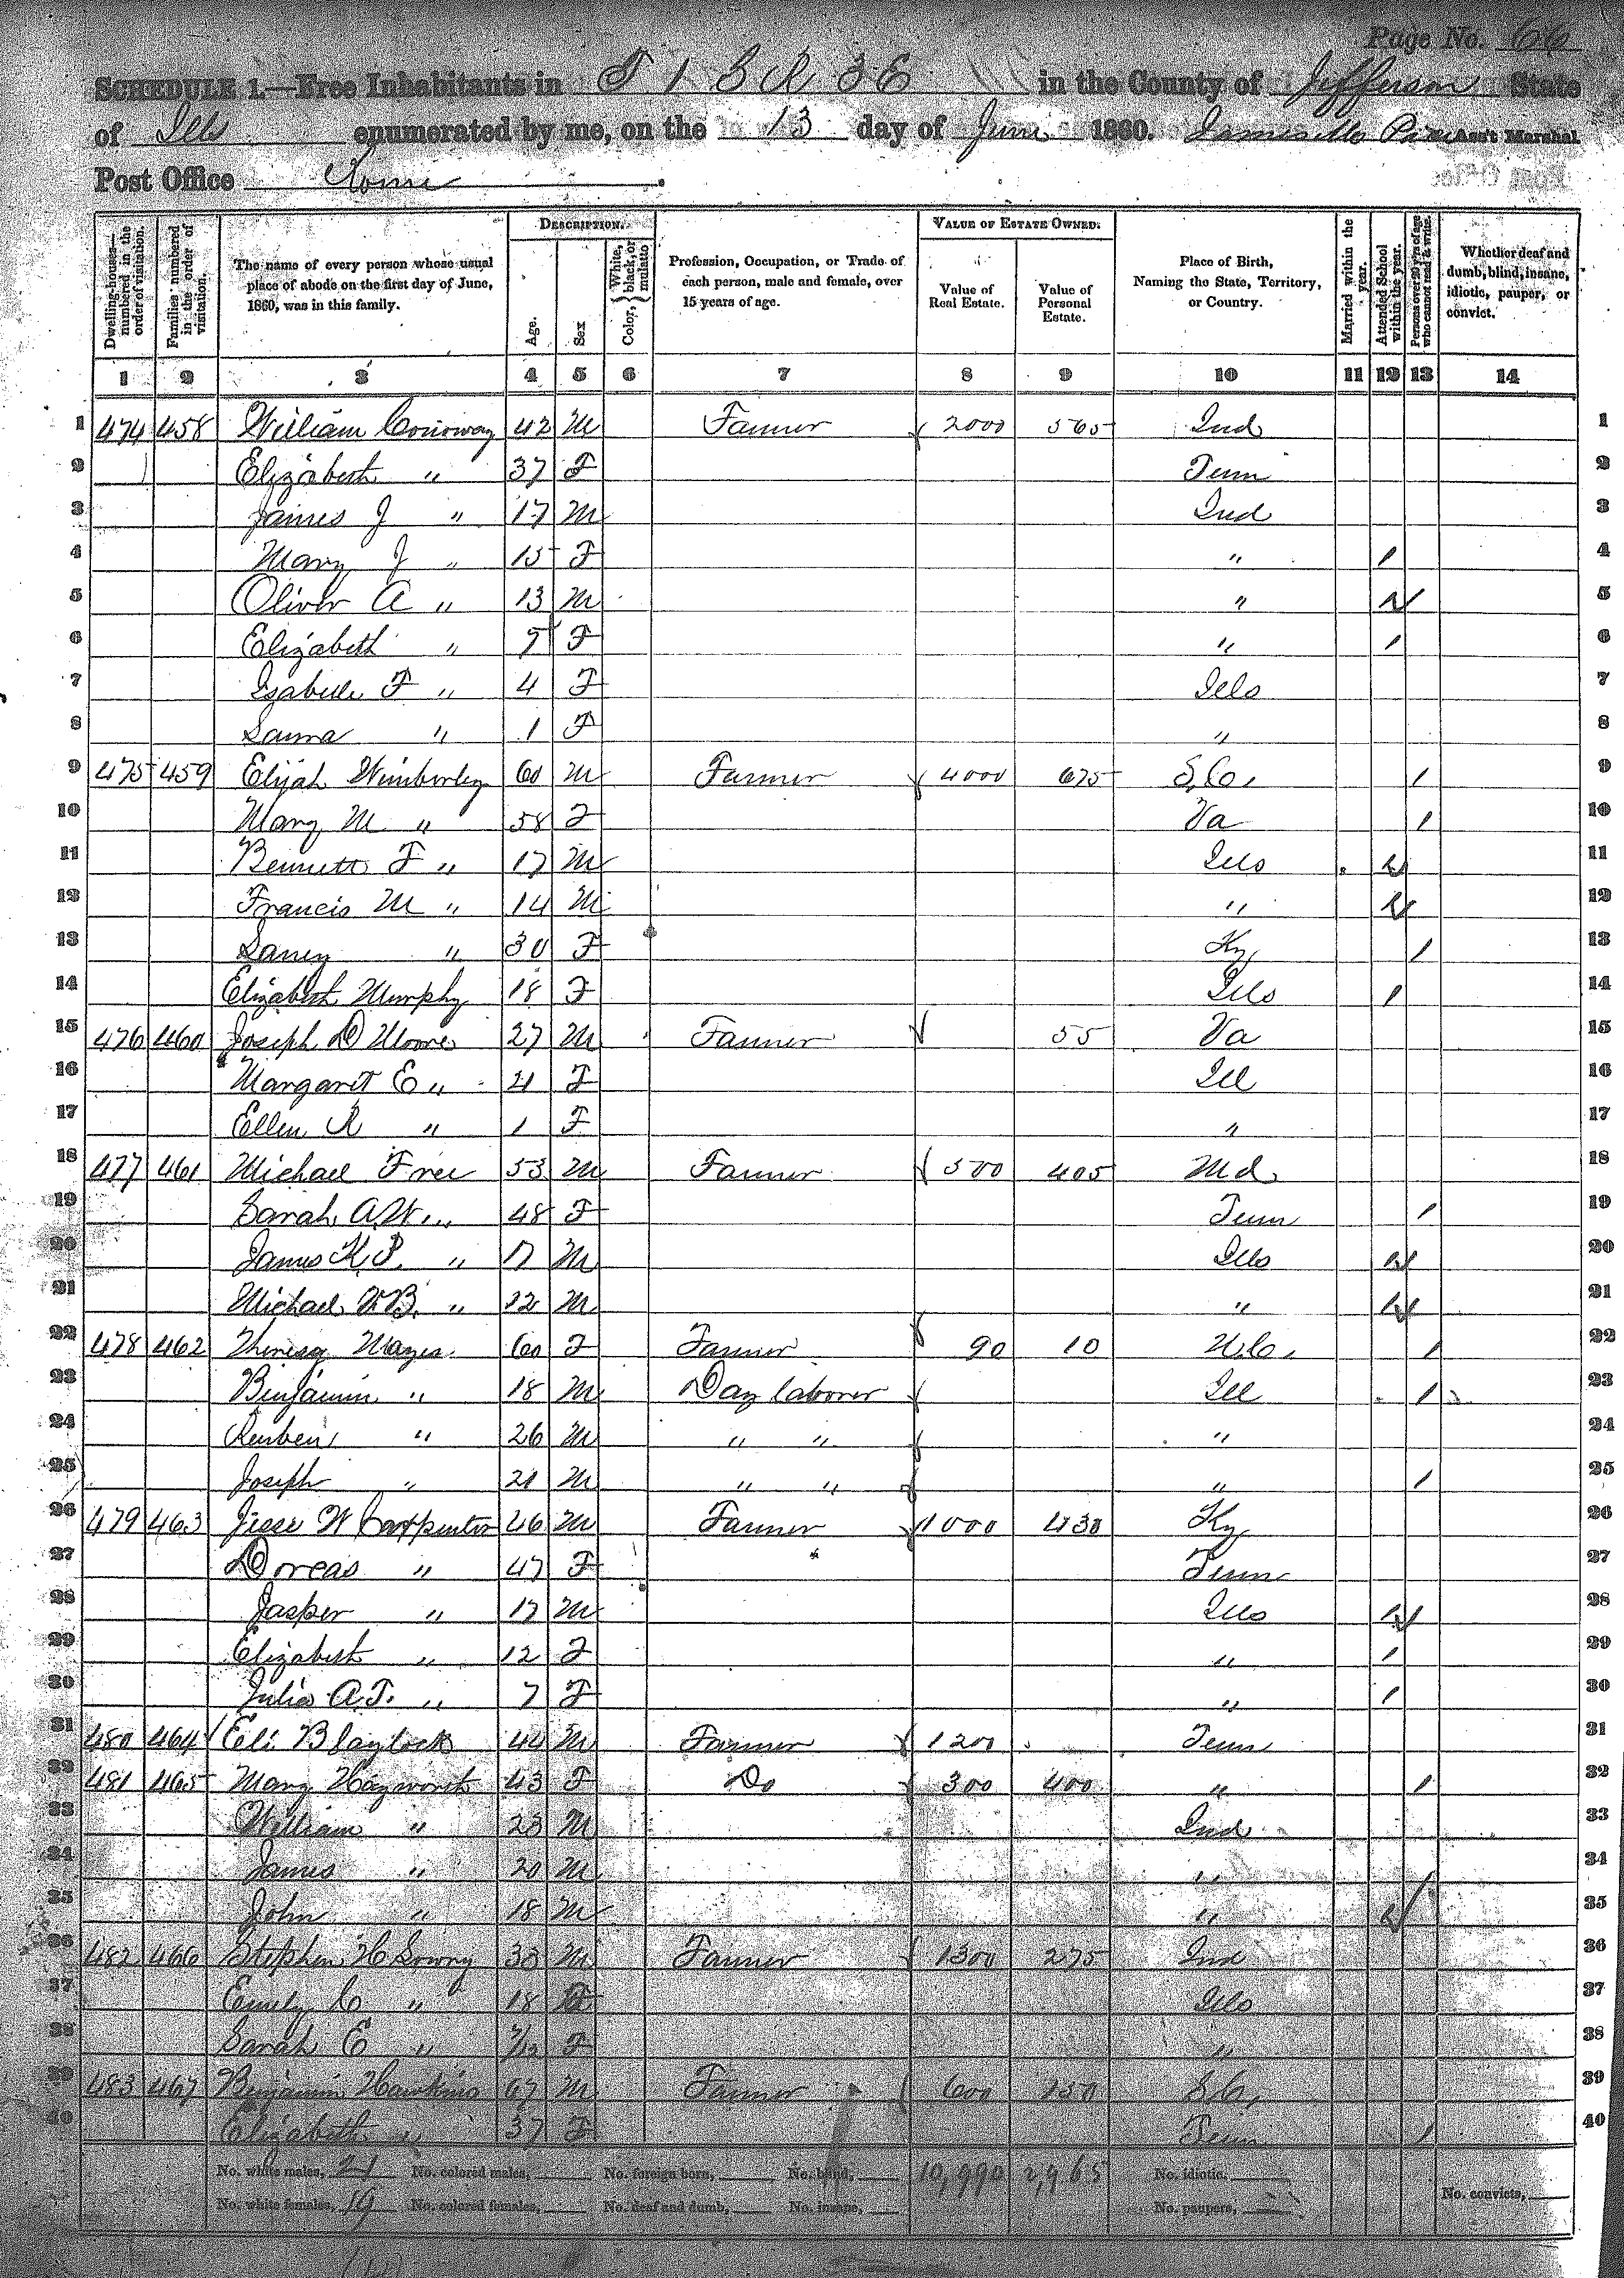 Page No. 66
SCHEDULE 1.—Free Inhabitants in T 1 S R 3 E in the County of Jefferson State
of Ills enumerated by me, on the 13 day of June 1860. Ass't Marshal.
Post Office Rome.
DESCRIPTION. VALUE OF ESTATE OWNED.
Dwelling-houses—numbered in the order of visitation. Families numbered in the order of visitation. The name of every person whose usual place of abode on the first day of June, 1860, was in this family. Age. Sex Color, White, black, or mulatto Profession, Occupation, or Trade of each person, male and female, over 15 years of age. Value of Real Estate. Value of Personal Estate. Place of Birth, Naming the State, Territory, or Country. Married within the year. Attended School within the year. Persons over 20 y'rs of age who cannot read & write. Whether deaf and dumb, blind, insane, idiotic, pauper, or convict.
1 2 3 4 5 6 7 8 9 10 11 12 13 14
1 474 458 William Conoway 42 M Farmer 2000 565 Ind 1
2 Elizabeth " 37 F Tenn 2
3 James J " 17 M Ind 3
4 Mary J " 15 F " / 4
5 Oliver A " 13 M " / 5
6 Elizabeth " F " / 6
7 Isabelle F " 4 F Ills 7
8 " 1 F " 8
9 475 459 Elijah Wimberley 60 M Farmer 4000 675 S.C. / 9
10 Mary M " 58 F Va / 10
11 Bennett F " 17 M Ills / 11
12 Francis M " 14 M " / 12
13 " 30 F Ky / 13
14 Elizabeth Murphy 18 F Ills / 14
15 476 460 Joseph D Moore 27 M Farmer 55 Va 15
16 Margaret E " 21 F Ill 16
17 Ellen R " 1 F " 17
18 477 461 Michael Free 53 M Farmer 500 405 Md 18
19 Sarah A.W. " 48 F Tenn / 19
20 James K.P. " M Ills / 20
21 Michael V.B. " 12 M " / 21
22 478 462 Mayes 60 F Farmer 90 10 N.C. / 22
23 Benjamin " 18 M Day laborer Ill / 23
24 Reuben " 26 M " " " 24
25 Joseph " 21 M " " " / 25
26 479 463 Jesse W Carpenter 46 M Farmer 1000 430 Ky 26
27 Dorcas " 47 F Tenn 27
28 Jasper " 17 M Ills / 28
29 Elizabeth " 12 F " / 29
30 Julia A.T. " 7 F " / 30
31 480 464 Eli Blaylock 44 M Farmer 1200 Tenn 31
32 481 465 Mary Hayworth 43 F Do 300 400 " / 32
33 William " 23 M Ind 33
34 James " 20 M " 34
35 John " 18 M " / 35
36 482 466 Stephen H Lowry 33 M Farmer 1300 275 Ind 36
37 Emily C " 18 F Ills 37
38 Sarah E " F " 38
39 483 467 Benjamin Hawkins 67 M Farmer 600 150 S.C. 39
40 Elizabeth " 37 F Tenn / 40
No. white males, 21 No. colored males, No. foreign born, No. blind, 10,990 2,965 No. idiotic,
No. white females, 19 No. colored females, No. deaf and dumb, No. insane, No. paupers, No. convicts,